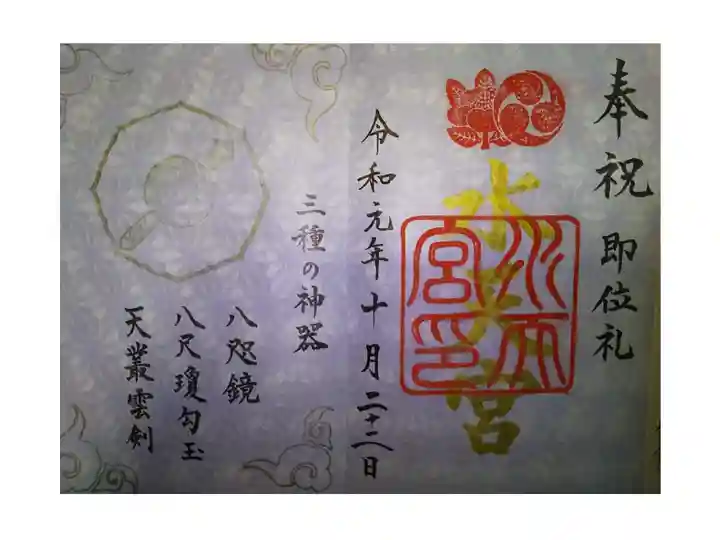 奉祝 即位礼
水天宮
水天宮印
令和元年十月二十二日
三種の神器
八咫鏡
八尺瓊勾玉
天叢雲剣